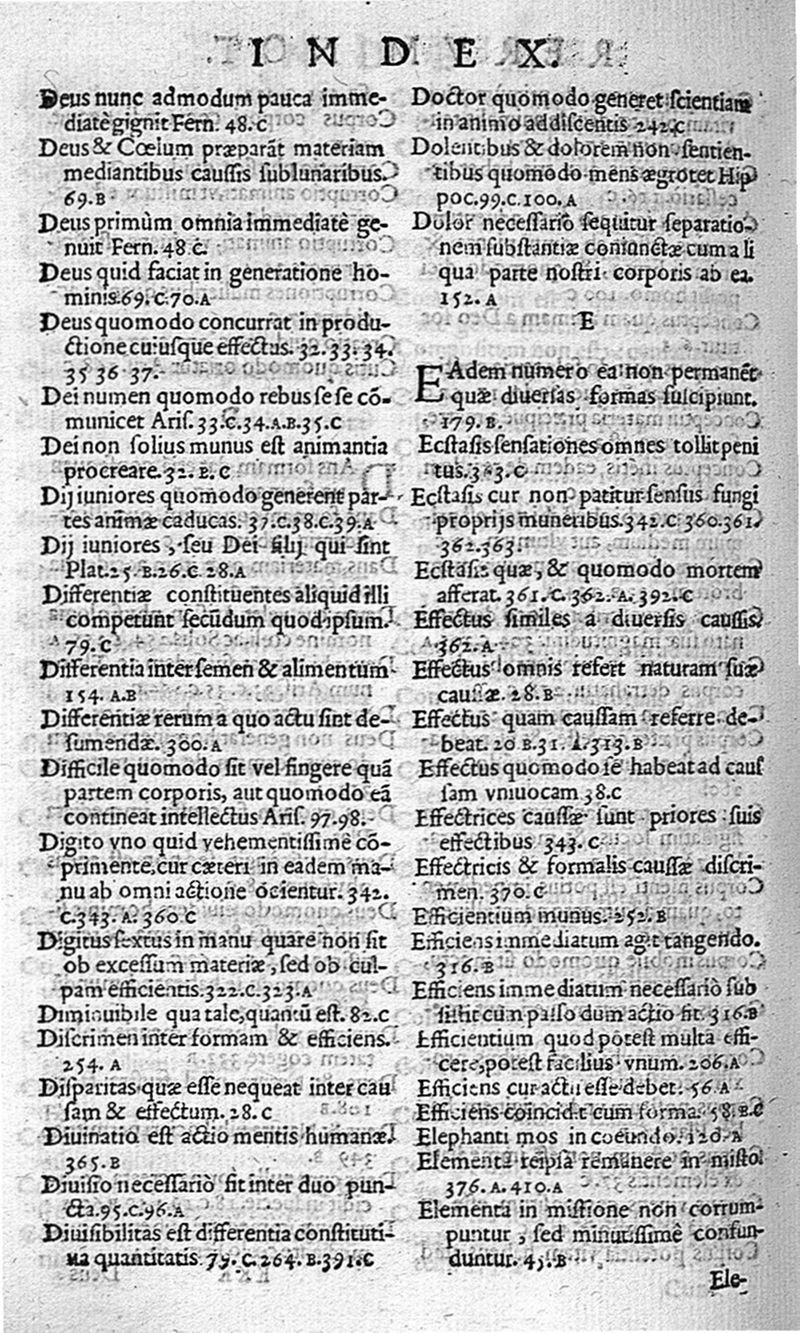 INDEX.
Deus nunc admodum pauca imme-
diatè gignit Fern. 48.C
Deus & Cœlum præparãt materiam
mediantibus caussis sublunaribus.
69.B
Deus primùm omnia immediatè ge-
nuit Fern. 48.c.
Deus quid faciat in generatione ho-
minis.69.C.70.A
Deus quomodo concurrat in produ-
ctione cuiusque effectus. 32.33.34.
35 36 37.
Dei numen quomodo rebus se se cõ-
municet Aris. 33.C.34.A.B.35.C
Dei non solius munus est animantia
procreare.32.B.C
Dij iuniores quomodo generent par-
tes animæ caducas. 37.C.38.C.39.A
Dij iuniores, seu Dei filij qui sint
Plat.25.B.26.C.28.A
Differentiæ constituentes aliquid illi
competunt secũdum quod ipsum.
79.C
Differentia inter semen & alimentum
154.A.B
Differentiæ rerum a quo actu sint de-
sumendæ. 300.A
Difficile quomodo sit vel fingere quã
partem corporis, aut quomodo eã
contineat intellectus Aris. 97.98.
Digito vno quid vehementissimè cõ-
primente, cur cæteri in eadem ma-
nu ab omni actione ocientur. 342.
C.343.A.360 C
Digitus sextus in manu quare non sit
ob excessum materiæ, sed ob cul-
pam efficientis.322.C.323.A
Diminuibile qua tale, quantũ est. 82.C
Discrimen inter formam & efficiens.
254. A
Disparitas quæ esse nequeat inter cau
sam & effectum. 28.C
Diuinatio est actio mentis humanæ.
365.B
Diuisio necessariò fit inter duo pun-
cta.95.C.96.A
Diuisibilitas est differentia constituti-
ua quantitatis. 79.C.264.B.391.C
Doctor quomodo generet scientiam
in animo addiscentis 242.C
Dolentibus & dolorem non sentien-
tibus quomodo mens ægrotet Hip
poc.99.C.100.A
Dolor necessariò sequitur separatio-
nem substantiæ coniunctæ cum ali
qua parte nostri corporis ab ea.
152. A
E
EAdem numero ea non permanẽt
quæ diuersas formas suscipiunt.
179.B.
Ecstasis sensationes omnes tollit peni
tus.343.C
Ecstasis cur non patitur sensus fungi
proprijs muneribus.342.C 360.361.
362.363.
Ecstasis quæ, & quomodo mortem
afferat. 361.C.362.A.392.C
Effectus similes a diuersis caussis.
362.A
Effectus omnis refert naturam suæ
caussæ. 28.B
Effectus quam caussam referre de-
beat. 20 B.31. A.313.B
Effectus quomodo se habeat ad cauf
sam vniuocam 38.C
Effectrices caussæ sunt priores suis
effectibus 343. C
Effectricis & formalis caussæ discri-
men. 370.C
Efficientium munus. 252.B
Efficiens immediatum agit tangendo.
316.B
Efficiens immediatum necessariò sub
sistit cum passo dum actio fit. 316.B
Efficientium quod potest multa effi-
cere, potest facilius vnum. 206.A
Efficiens cur actu esse debet. 56.A
Efficiens coincidit cum forma. 58.B.C
Elephanti mos in coeundo. 120.A
Elementa reipsa remanere in misto
376.A.410.A
Elementa in mistione non corrum-
puntur, sed minutissimè confun-
duntur. 45.B
Ele-